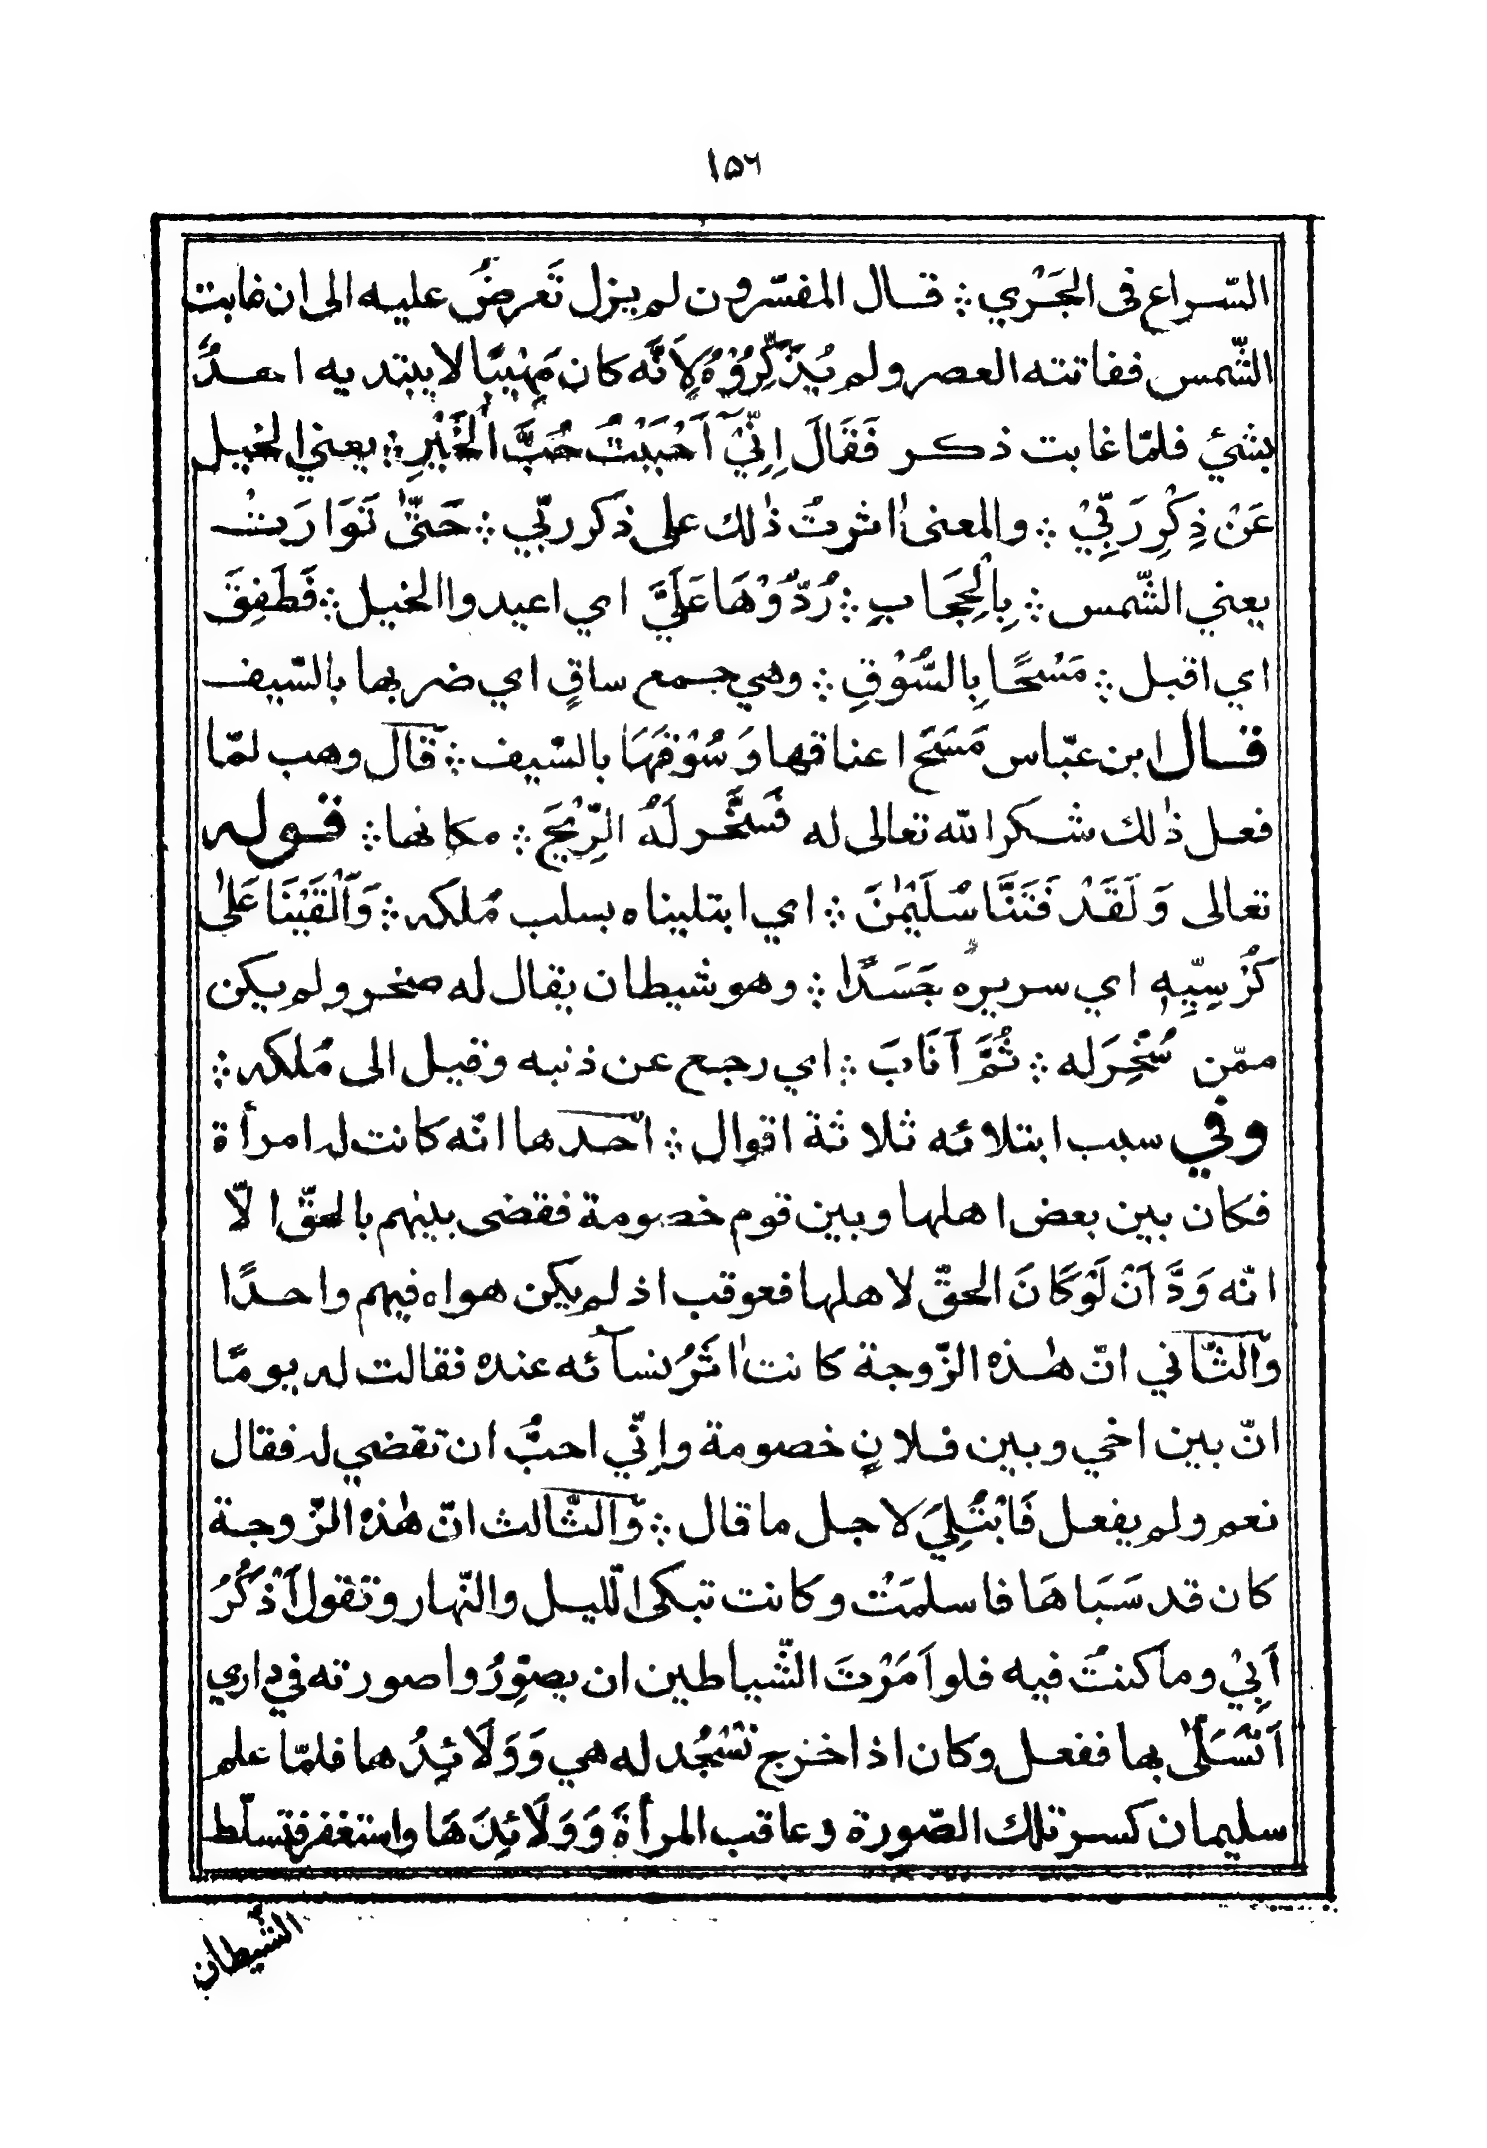 ١٥٦
السّراع في الجَرْي ؞ قال المفسّرون لم يزل تَعرضُ عليه الى ان غابت
الشّمس ففاتته العصر ولم يُذَكِّرُوْهُ لِاَنَّه كان مَهِيبًا لا يبتديه احدٌ
بشئ فلمّا غابت ذكر فَقَالَ اِنِّيْٓ اَحْبَبْتُ حُبَّ الْخَيْرِ ؞ يعني الخيل
عَنْ ذِكْرِ رَبِّيْ ؞ والمعنى اٰثرتُ ذٰلك على ذكر ربّي ؞ حَتّٰى تَوَارَتْ
يعني الشّمس ؞ بِالْحِجَابِ ؞ رُدُّوْهَا عَلَيَّ اي اعيدوا الخيل ؞ فَطَفِقَ
اي اقبل ؞ مَسْحًا بِالسُّوْقِ ؞ وهي جمع ساقٍ اي ضربها بالسّيف
قال ابن عبّاس مَسَحَ اعناقها وَسُوْقَهَا بالسّيف ؞ قال وهب لمّا
فعل ذٰلك شكرا لله تعالى له فَسَخَّر لَهُ الرِّيْحَ ؞ مكانها ؞ قوله
تعالى وَلَقَدْ فَتَنَّا سُلَيْمٰنَ ؞ اي ابتليناه بسلب مُلكه ؞ وَاَلْقَيْنَا عَلٰى
كُرْسِيِّهٖ اي سريره جَسَدًا ؞ وهو شيطان يقال له صخر ولم يكن
ممّن سُخِّرَ له ؞ ثُمَّ اَنَابَ ؞ اي رجع عن ذنبه وقيل الى مُلكه ؞
وفي سبب ابتلائه ثلاثة اقوال ؞ احدها انّه كانت له امرأة
فكان بين بعض اهلها وبين قوم خصومة فقضى بينهم بالحقّ الّا
انّه وَدَّ اَنْ لَوْ كَانَ الحقّ لاهلها فعوقب اذ لم يكن هواه فيهم واحدًا
والثّاني انّ هٰذه الزّوجة كانت اٰثَرُ نسآئه عنده فقالت له يومًا
انّ بين اخي وبين فلانٍ خصومة واِنّي احبُّ ان تقضي له فقال
نعم ولم يفعل فَابْتُلِيَ لاجل ما قال ؞ والثّالث انّ هٰذه الزّوجة
كان قد سَبَاهَا فاسلمَتْ وكانت تبكى الّليل والنّهار وتقول اَذْكُرُ
اَبِيْ وما كنتُ فيه فلو اَمَرْتَ الشّياطين ان يصوِّرُوا صورته في داري
اَتَسَلّٰى بها ففعل وكان اذا خرج تَسْجُد له هي وَوَلَائِدُها فلمّا علم
سليمان كسر تلك الصّورة وعاقب المرأةَ وَوَلَائِدَهَا واستغفر فتسلّط
الشّيطان